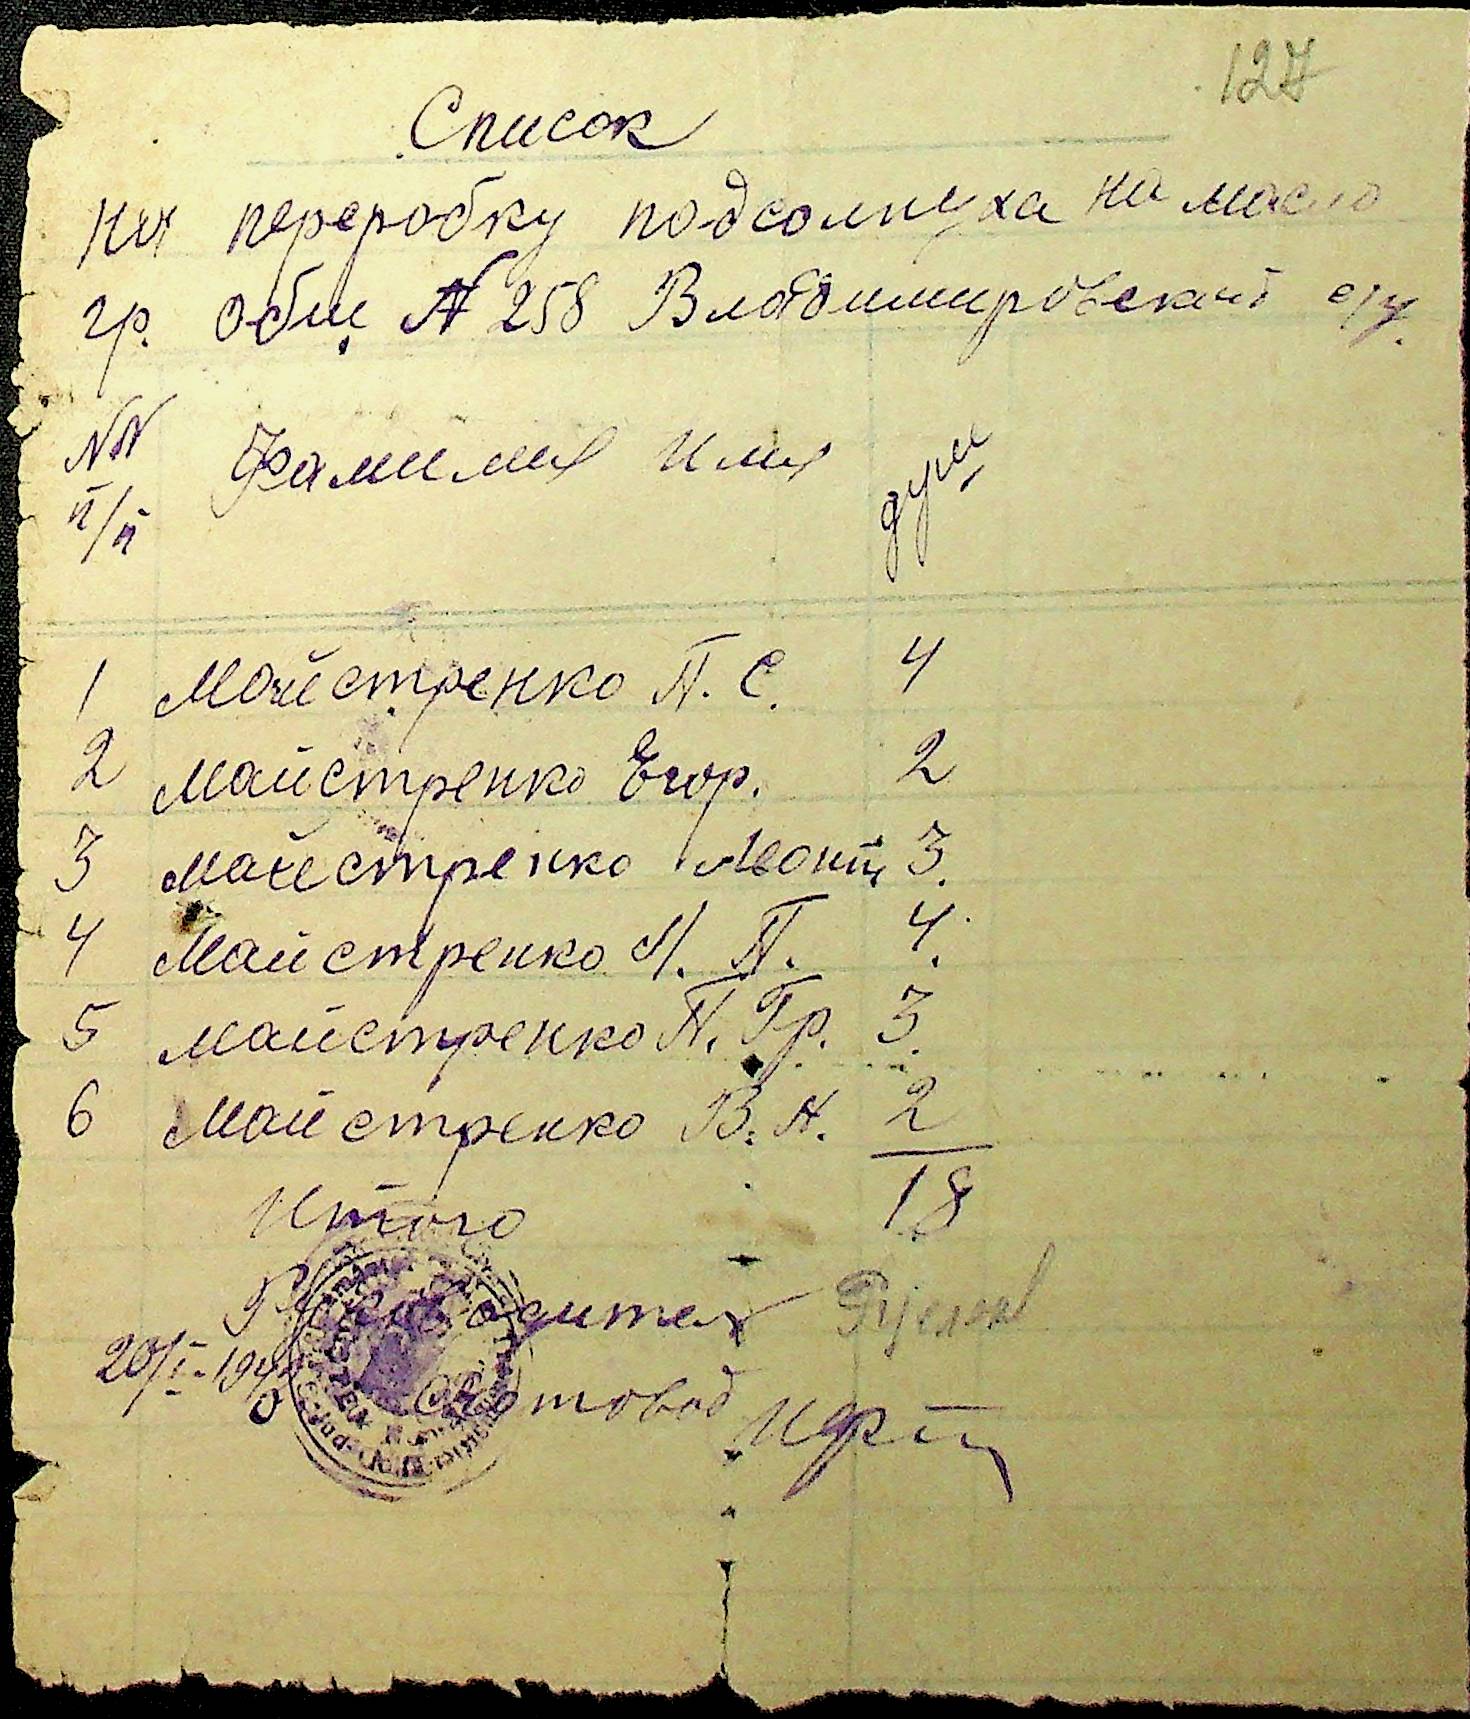 127
Список
на переробку подсолнуха на масло
гр. общ. № 258 Владимировской с/у.
№№ п/п Фамилия Имя душ
1 Майстренко П. С. 4
2 Майстренко Егор. 2
3 Майстренко Леонт 3.
4 Майстренко И. П. 4.
5 Майстренко П. Гр. 3.
6 Майстренко В. А. 2
Итого 18
Руководитель
20/I-194
Счетовод